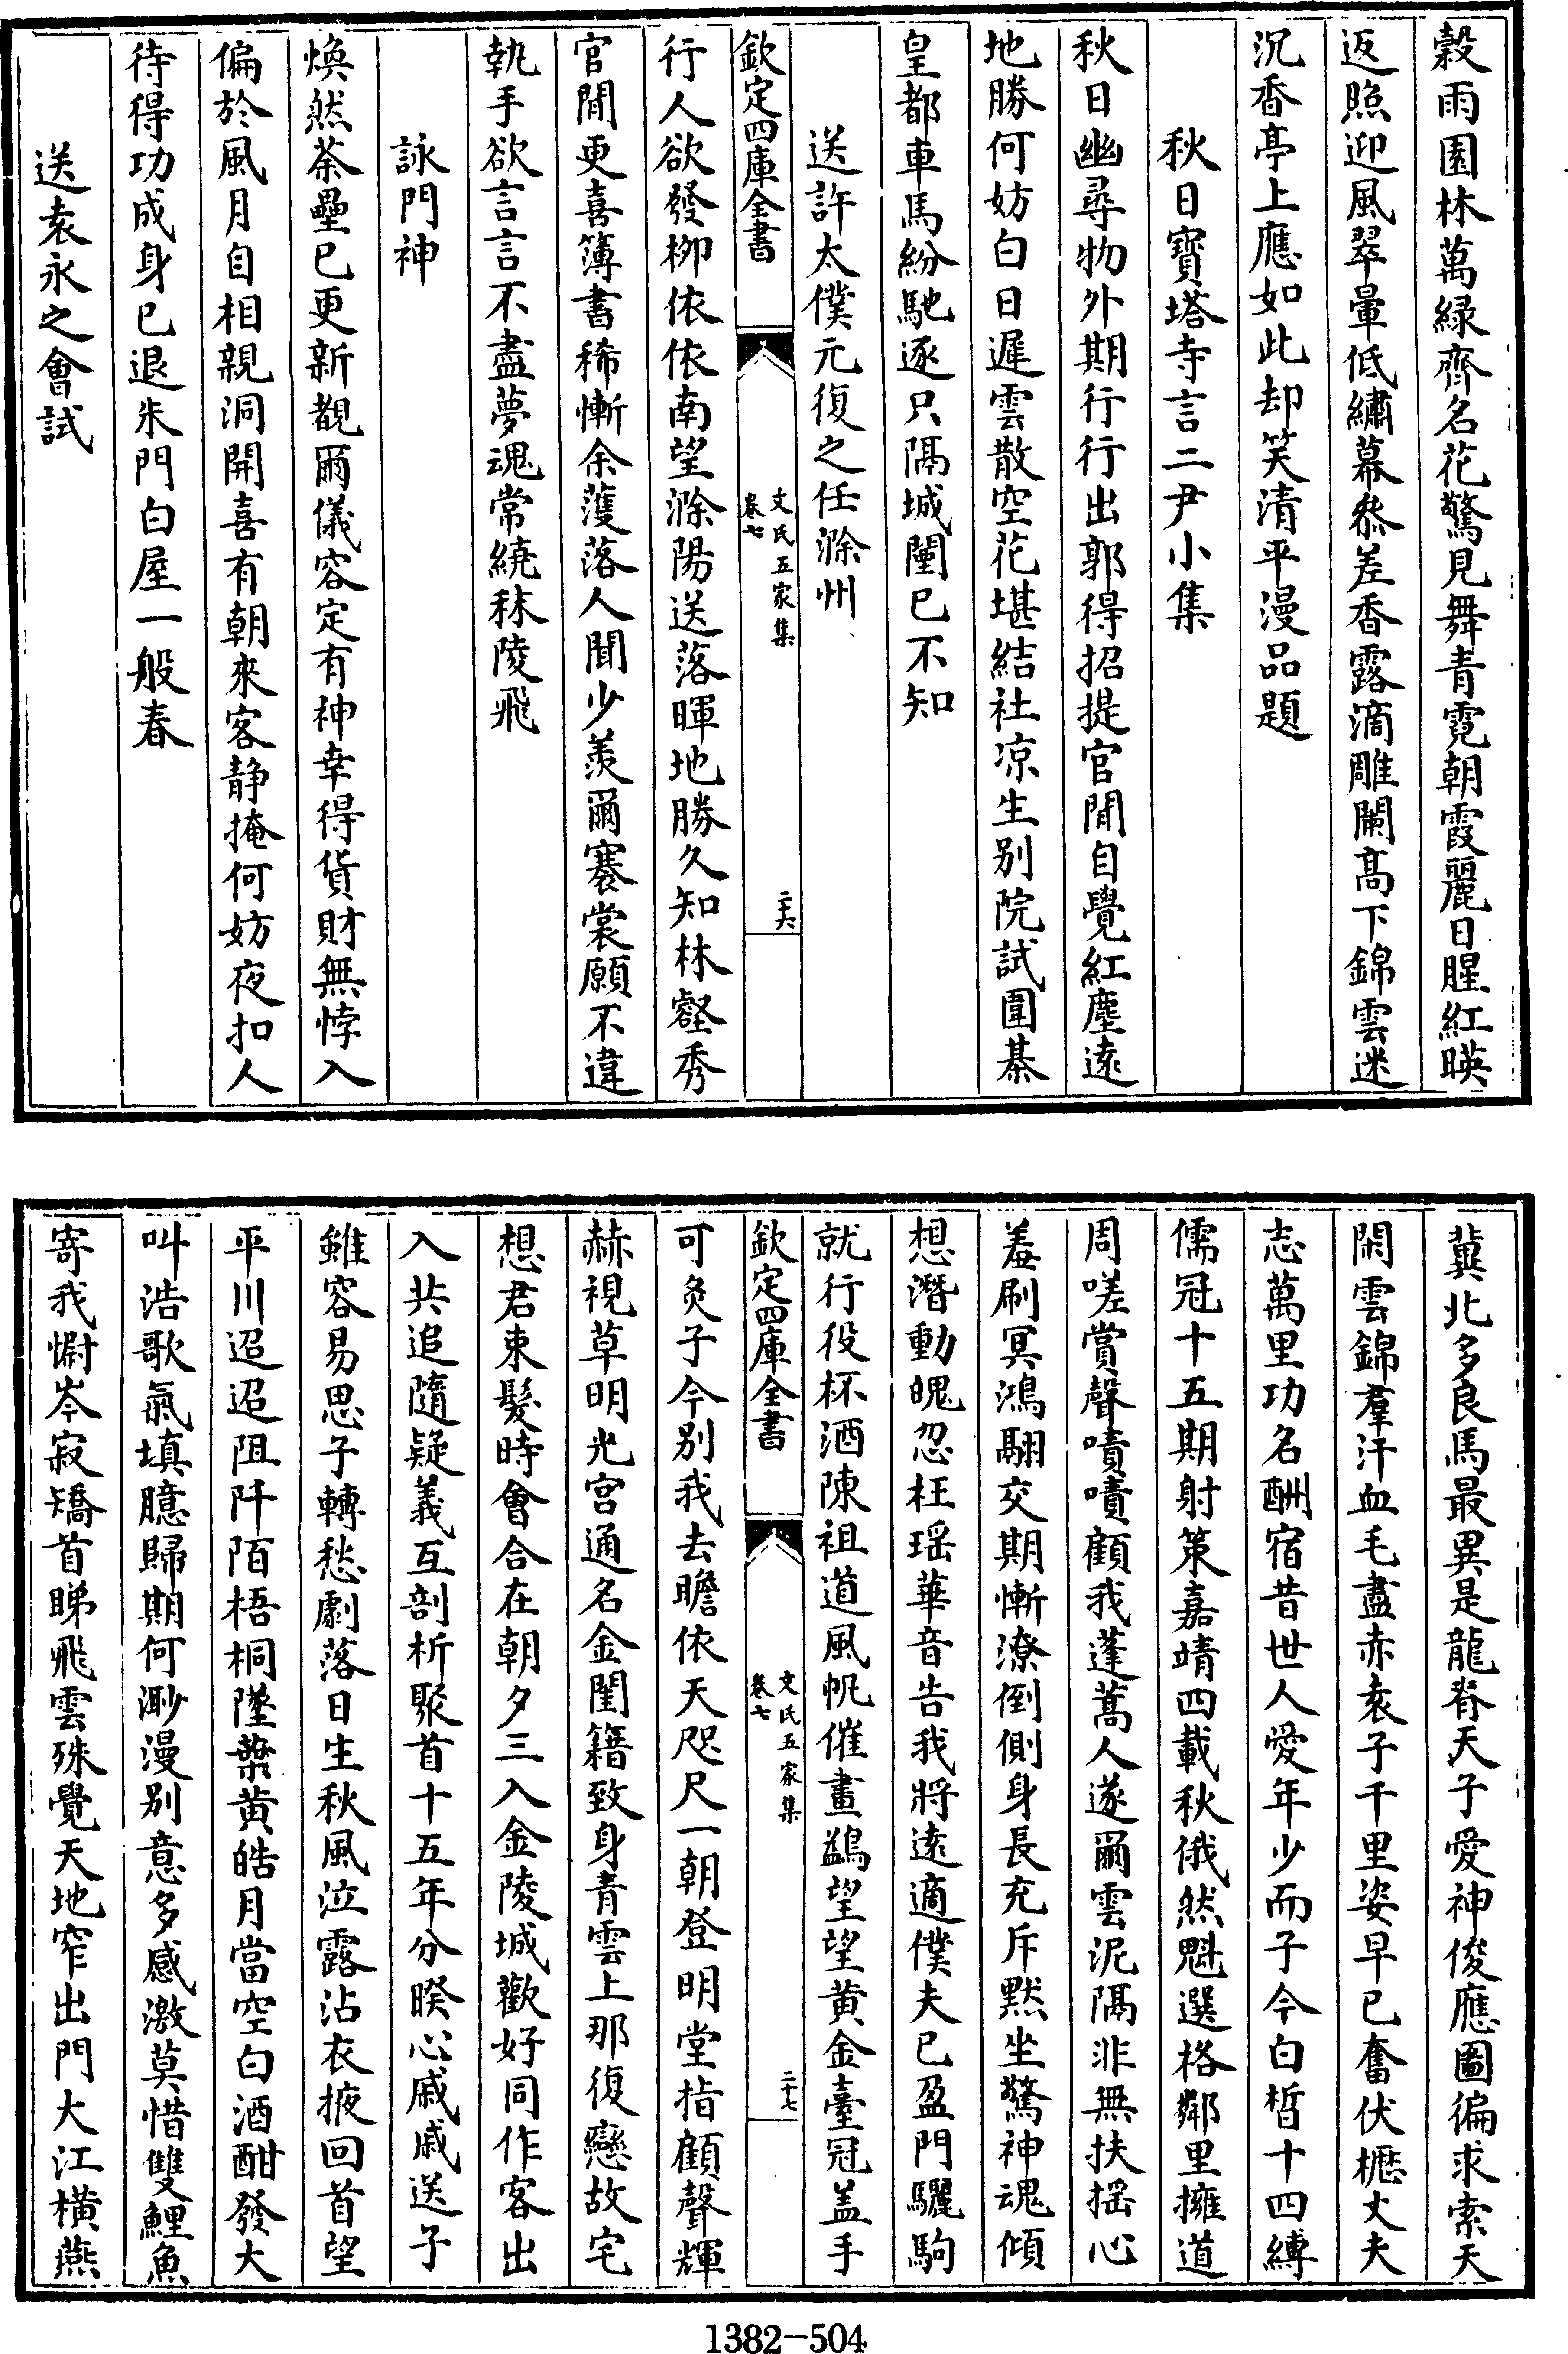 穀雨園林萬緑齊名花驚見舞青霓朝霞麗日腥紅暎
返照迎風翠暈低繡幕叅差香露滴雕闌髙下錦雲迷
沉香亭上應如此却笑清平漫品題
秋日寳塔寺言二尹小集
秋日幽尋物外期行行出郭得招提官閒自覺紅塵逺
地勝何妨白日遲雲散空花堪結社凉生别院試圍棊
皇都車馬紛馳逐只隔城闉已不知
送許太僕元復之任滁州
欽定四庫全書
文氏五家集
卷七
二十六
行人欲發栁依依南望滁陽送落暉地勝久知林壑秀
官閒更喜簿書稀慚余濩落人聞少羡爾褰裳願不違
執手欲言言不盡夢魂常繞秣陵飛
詠門神
煥然荼壘已更新覩爾儀容定有神幸得貨財無悖入
偏於風月自相親洞開喜有朝來客静掩何妨夜扣人
待得功成身已退朱門白屋一般春
送袁永之會試
冀北多良馬最異是龍脊天子愛神俊應圖徧求索天
閑雲錦羣汗血毛盡赤袁子千里姿早已奮伏櫪丈夫
志萬里功名酬宿昔世人愛年少而子今白晳十四縛
儒冠十五期射策嘉靖四載秋俄然魁選格鄰里擁道
周嗟賞聲嘖嘖顧我蓬蒿人遂爾雲泥隔非無扶揺心
羞刷冥鴻翮交期慚潦倒側身長充斥黙坐驚神魂傾
想潛動魄忽枉瑶華音告我將逺適僕夫已盈門驪駒
就行役杯酒陳祖道風帆催畫鷁望望黄金臺冠盖手
欽定四庫全書
文氏五家集
卷七
二十七
可灸子今别我去瞻依天咫尺一朝登明堂指顧聲輝
赫視草明光宫通名金閨籍致身青雲上那復戀故宅
想君束髮時㑹合在朝夕三入金陵城歡好同作客出
入共追隨疑義互剖析聚首十五年分暌心戚戚送子
雖容易思子轉愁劇落日生秋風泣露沾衣掖回首望
平川迢迢阻阡陌梧桐墜葉黄皓月當空白酒酣發大
叫浩歌氣填臆歸期何渺漫别意多感激莫惜雙鯉魚
寄我慰岑寂矯首睇飛雲殊覺天地窄出門大江横燕
1382-504